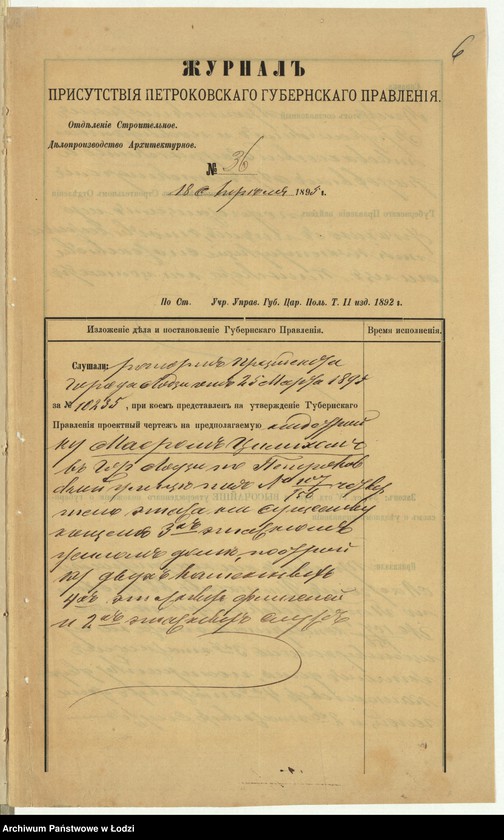 6
ЖУРНАЛЪ
ПРИСУТСТВІЯ ПЕТРОКОВСКАГО ГУБЕРНСКАГО ПРАВЛЕНІЯ.
Отдѣленіе Строительное.
Дѣлопроизводство Архитектурное.
№ 36
18 Апрѣля 1895 г.
По Ст. Учр. Управ. Губ. Цар. Поль. Т. II изд. 1892 г.
Изложеніе дѣла и постановленіе Губернскаго Правленія.
Время исполненія.
Слушали: рапортъ Президента
города Лодзи отъ 25 Марта 1895
за № 10235, при коемъ представленъ на утвержденіе Губернскаго
Правленія проектный чертежъ на предполагаемую надстрой
ку
въ гор. Лодзи по Петроков
ской улицѣ подъ № 107/756 четвер
таго этажа на существу
ющемъ 3хъ этажномъ
домѣ, построй
ку двухъ каменныхъ
4хъ этажныхъ флигелей
и 2хъ этажныхъ
Archiwum Państwowe w Łodzi